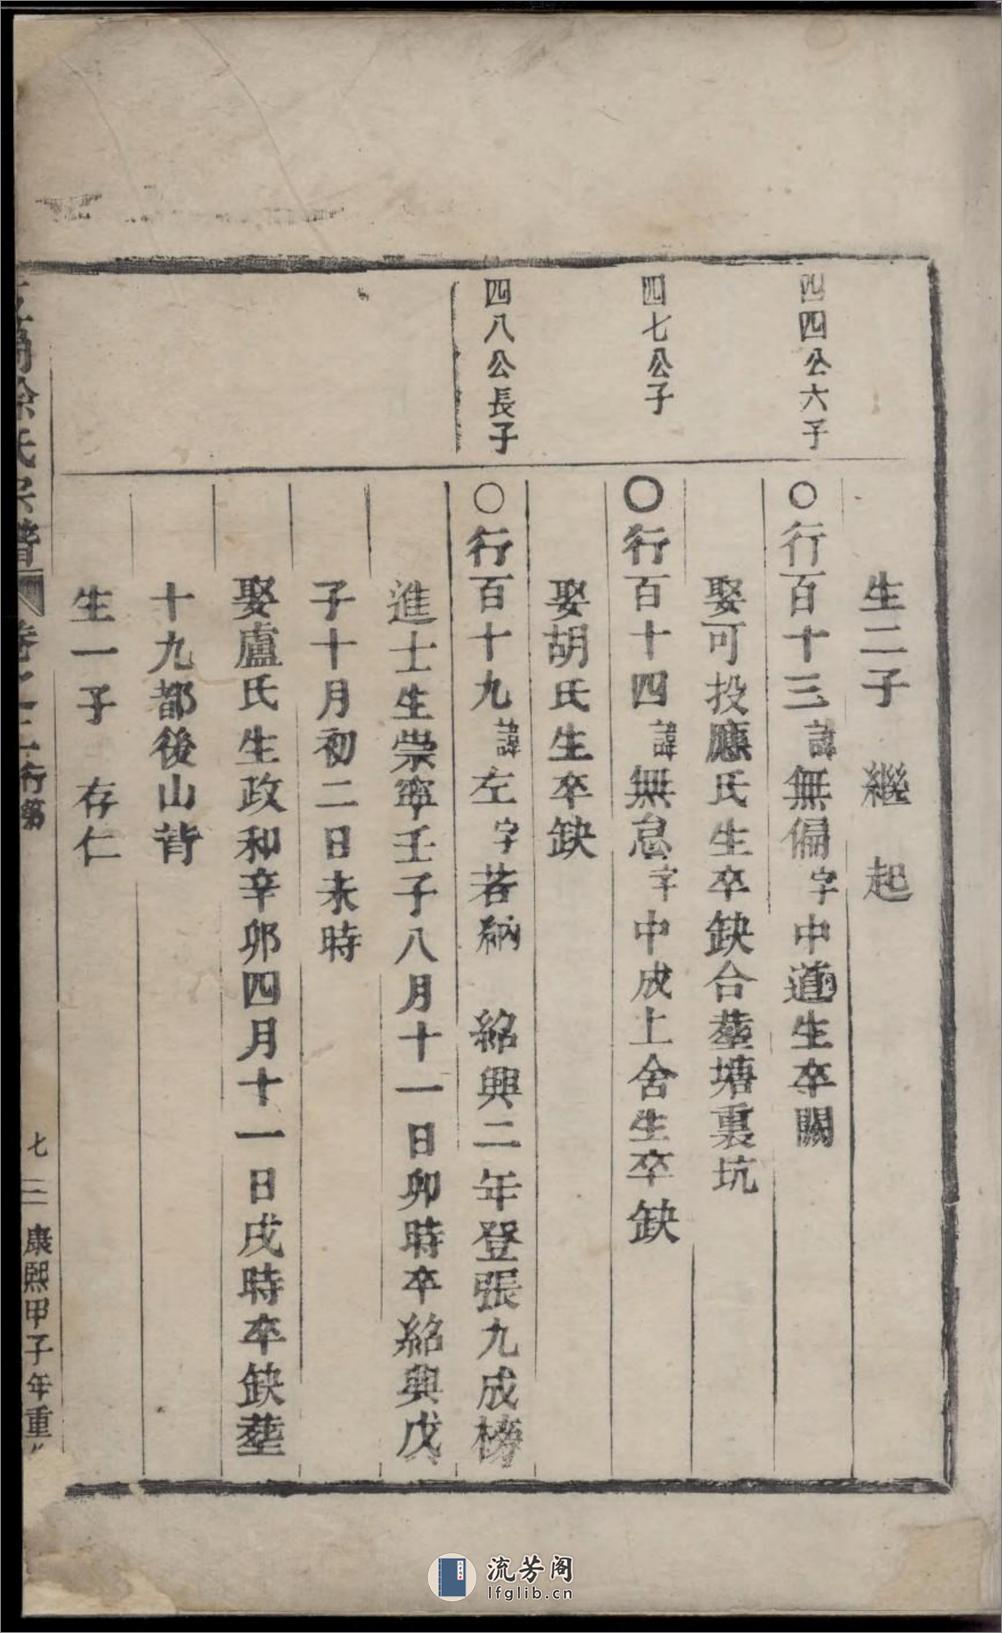 生二子 繼 起
四四公六子
○行百十三諱無偏字中道生卒闕
娶可投應氏生卒缺合塟塘裏坑
四七公子
○行百十四諱無怠字中成上舍生卒缺
娶胡氏生卒缺
四八公長子
○行百十九諱左字若納 紹興二年登張九成榜
進士生崇寧壬子八月十一日卯時卒紹興戊
子十月初二日未時
娶盧氏生政和辛卯四月十一日戌時卒缺塟
十九都後山背
生一子 存仁
徐氏宗譜 卷之二行第
七 三 康熙甲子年重
流芳阁
lfglib.cn